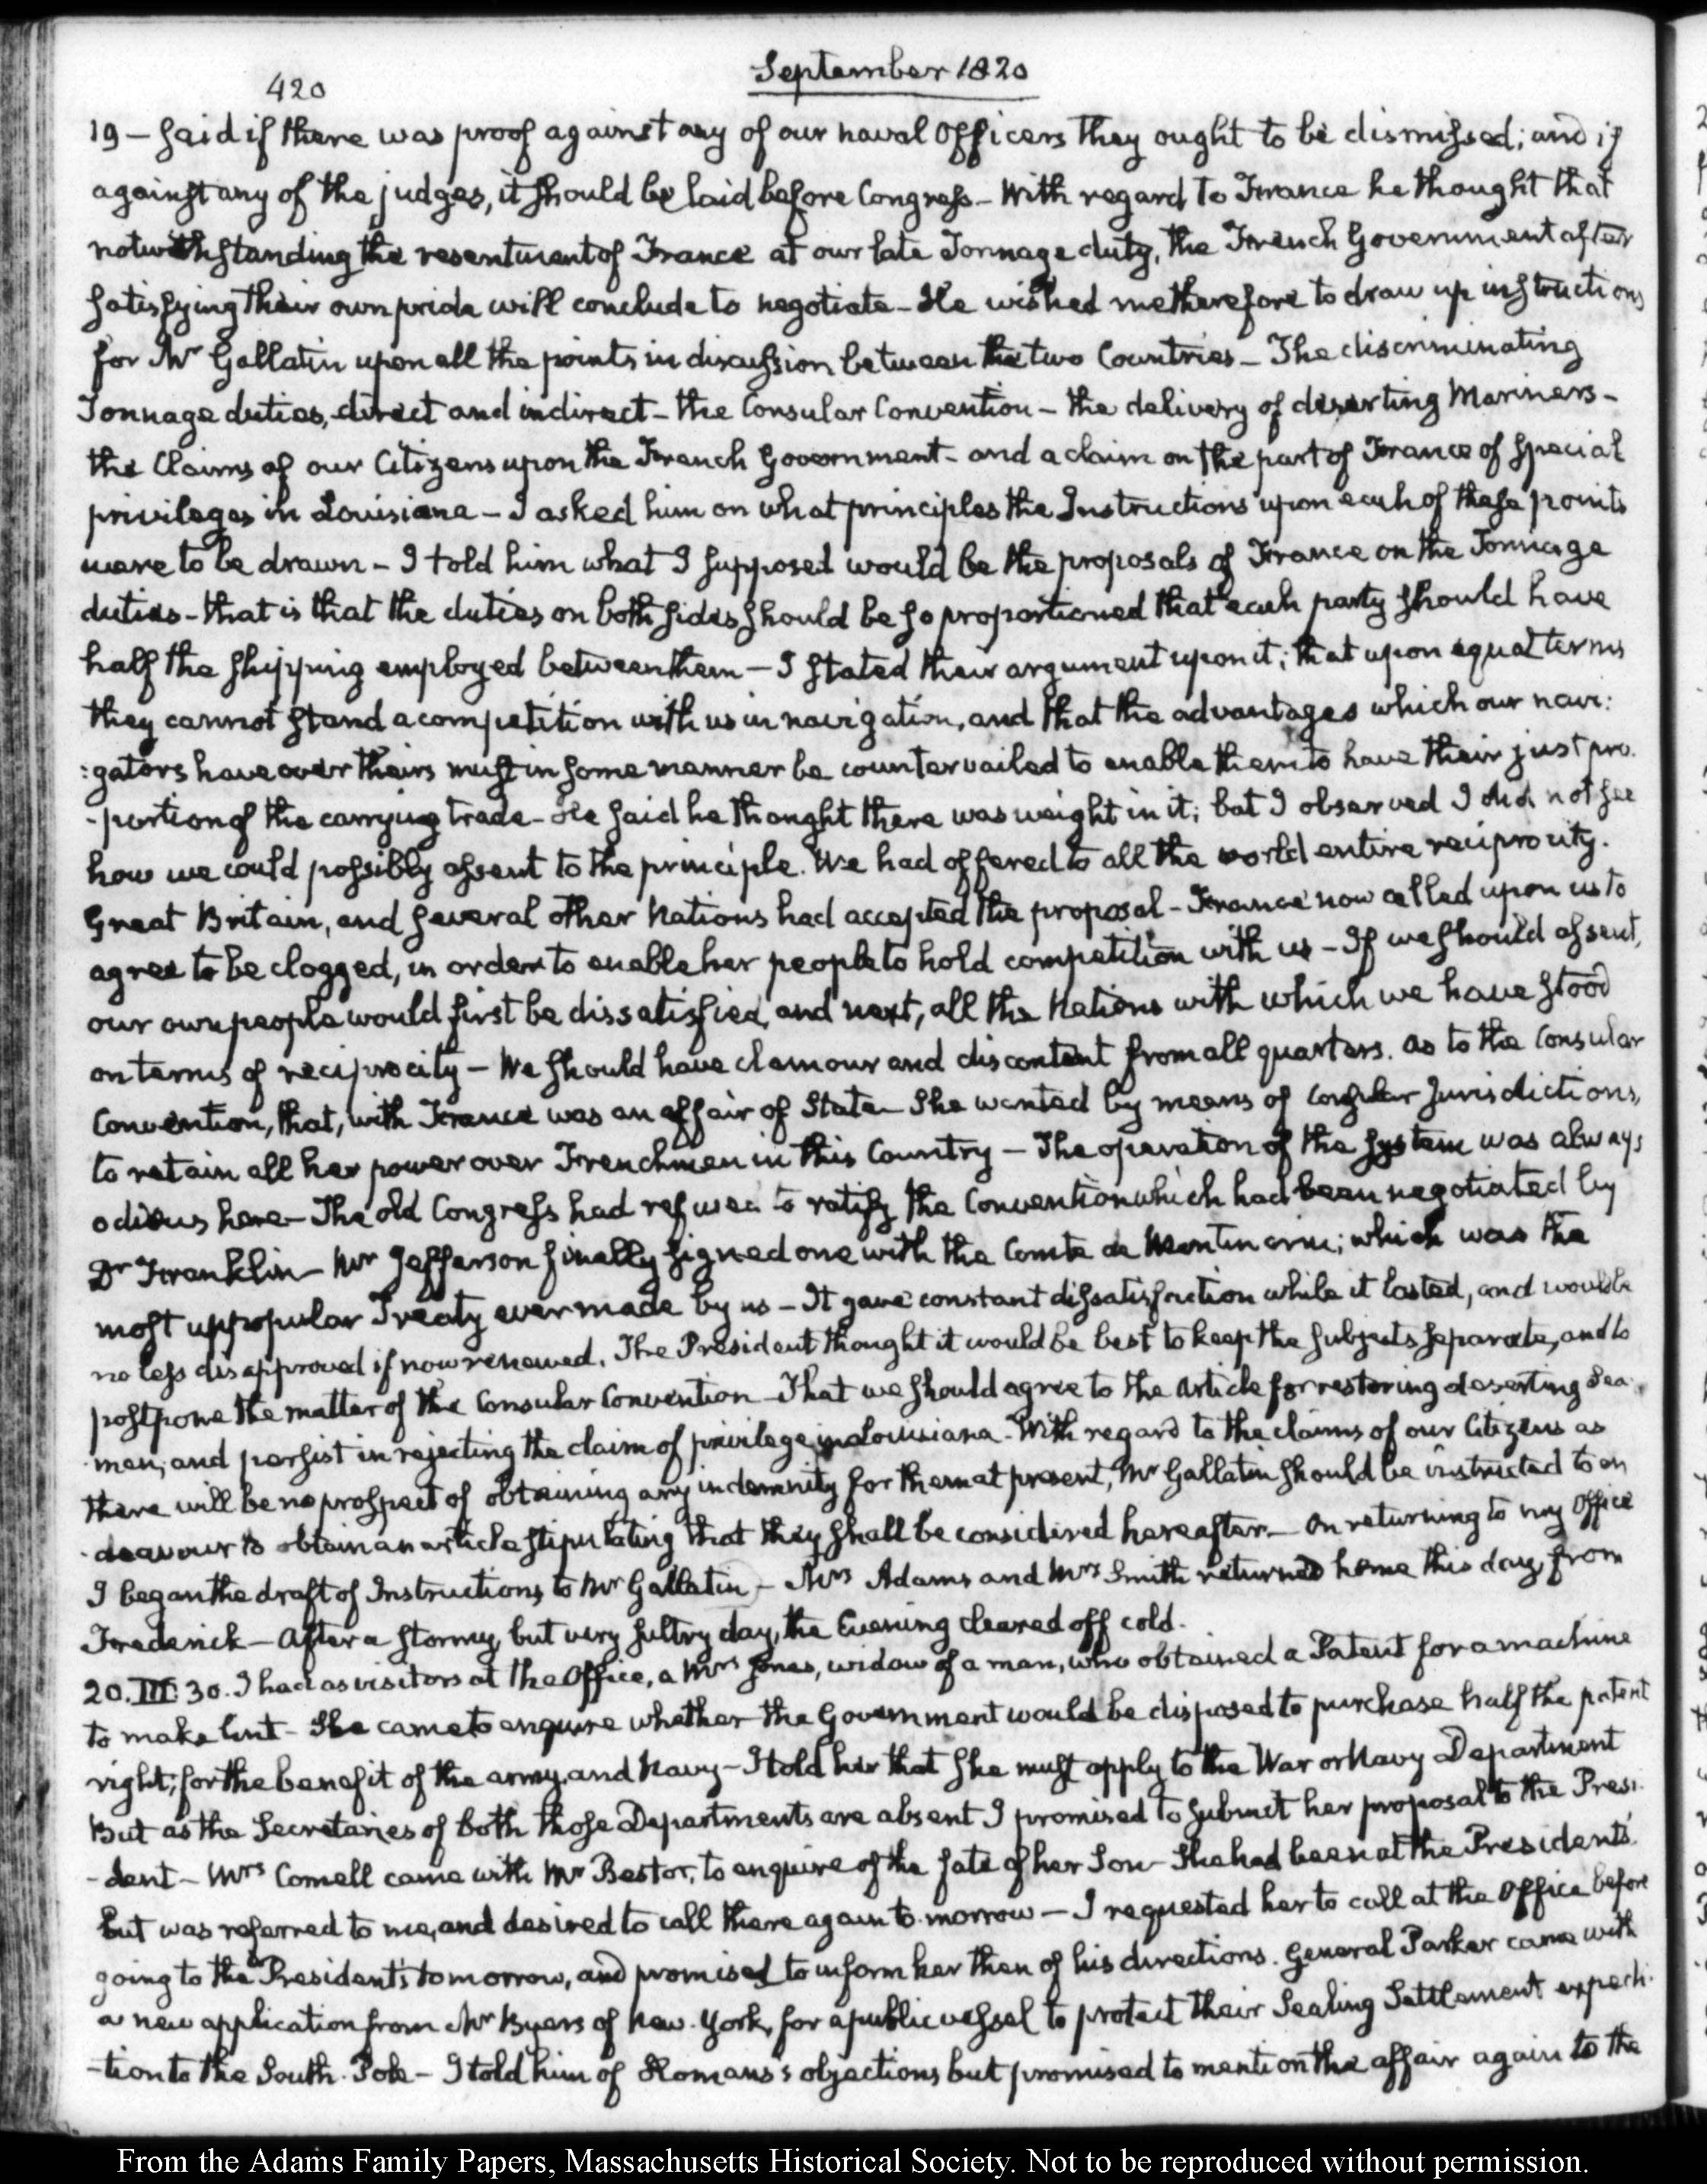 420
September 1820
19 — said if there was proof against any of our naval Officers they ought to be dismissed; and if
against any of the judges, it should be laid before Congress — With regard to France he thought that
notwithstanding the resentment of France at our late Tonnage duty, the French Government after
satisfying their own pride will conclude to negotiate — He wished me therefore to draw up instructions
for Mr Gallatin upon all the points in discussion between the two Countries — The discriminating
Tonnage duties, direct and indirect — the Consular Convention — the delivery of deserting Mariners —
the Claims of our Citizens upon the French Government — and a claim on the part of France of special
privileges in Louisiana — I asked him on what principles the Instructions upon each of these points
were to be drawn — I told him what I supposed would be the proposals of France on the Tonnage
duties — that is that the duties on both sides should be so proportioned that each party should have
half the shipping employed between them — I stated their argument upon it; that upon equal terms
they cannot stand a competition with us in navigation, and that the advantages which our navi:
:gators have over theirs must in some manner be countervailed to enable them to have their just pro-
-portion of the carrying trade — He said he thought there was weight in it; but I observed I did not see
how we could possibly assent to the principle. We had offered to all the world entire reciprocity.
Great Britain, and several other Nations had accepted the proposal — France now called upon us to
agree to be clogged, in order to enable her people to hold competition with us — If we should assent,
our own people would first be dissatisfied, and next, all the Nations with which we have stood
on terms of reciprocity — We should have clamour and discontent from all quarters. As to the Consular
Convention, that, with France was an affair of State — She wanted by means of Consular Jurisdictions,
to retain all her power over Frenchmen in this Country — The operation of the system was always
odious here — The old Congress had refused to ratify the Convention which had been negotiated by
Dr Franklin — Mr Jefferson finally signed one with the Comte de Montmorin; which was the
most unpopular Treaty ever made by us — It gave constant dissatisfaction while it lasted, and would be
no less disapproved if now renewed. The President thought it would be best to keep the subjects separate, and to
postpone the matter of the Consular Convention — That we should agree to the Article for restoring deserting Sea-
-men, and persist in rejecting the claim of privilege in Louisiana. With regard to the claims of our Citizens as
there will be no prospect of obtaining any indemnity for them at present, Mr Gallatin should be instructed to en
-deavour to obtain an article stipulating that they shall be considered hereafter — On returning to my Office
I began the draft of Instructions to Mr Gallatin — Mrs Adams and Mrs Smith returned home this day, from
Frederick — After a stormy, but very sultry day, the Evening cleared off cold.
20. III:30. I had as visitors at the Office, a Mrs Jones, widow of a man, who obtained a Patent for a machine
to make lint — She came to enquire whether the Government would be disposed to purchase half the patent
right; for the benefit of the army and Navy — I told her that she must apply to the War or Navy Department
But as the Secretaries of both those Departments are absent I promised to submit her proposal to the Presi-
-dent — Mrs Cornell came with Mr Bestor, to enquire of the fate of her Son — She had been at the President's.
but was referred to me, and desired to call there again to-morrow — I requested her to call at the Office before
going to the President's tomorrow, and promised to inform her then of his directions. General Parker came with
a new application from Mr Byers of New-York, for a public vessel to protect their Sealing Settlement expedi-
-tion to the South-Pole — I told him of Romans's objections but promised to mention the affair again to the
From the Adams Family Papers, Massachusetts Historical Society. Not to be reproduced without permission.